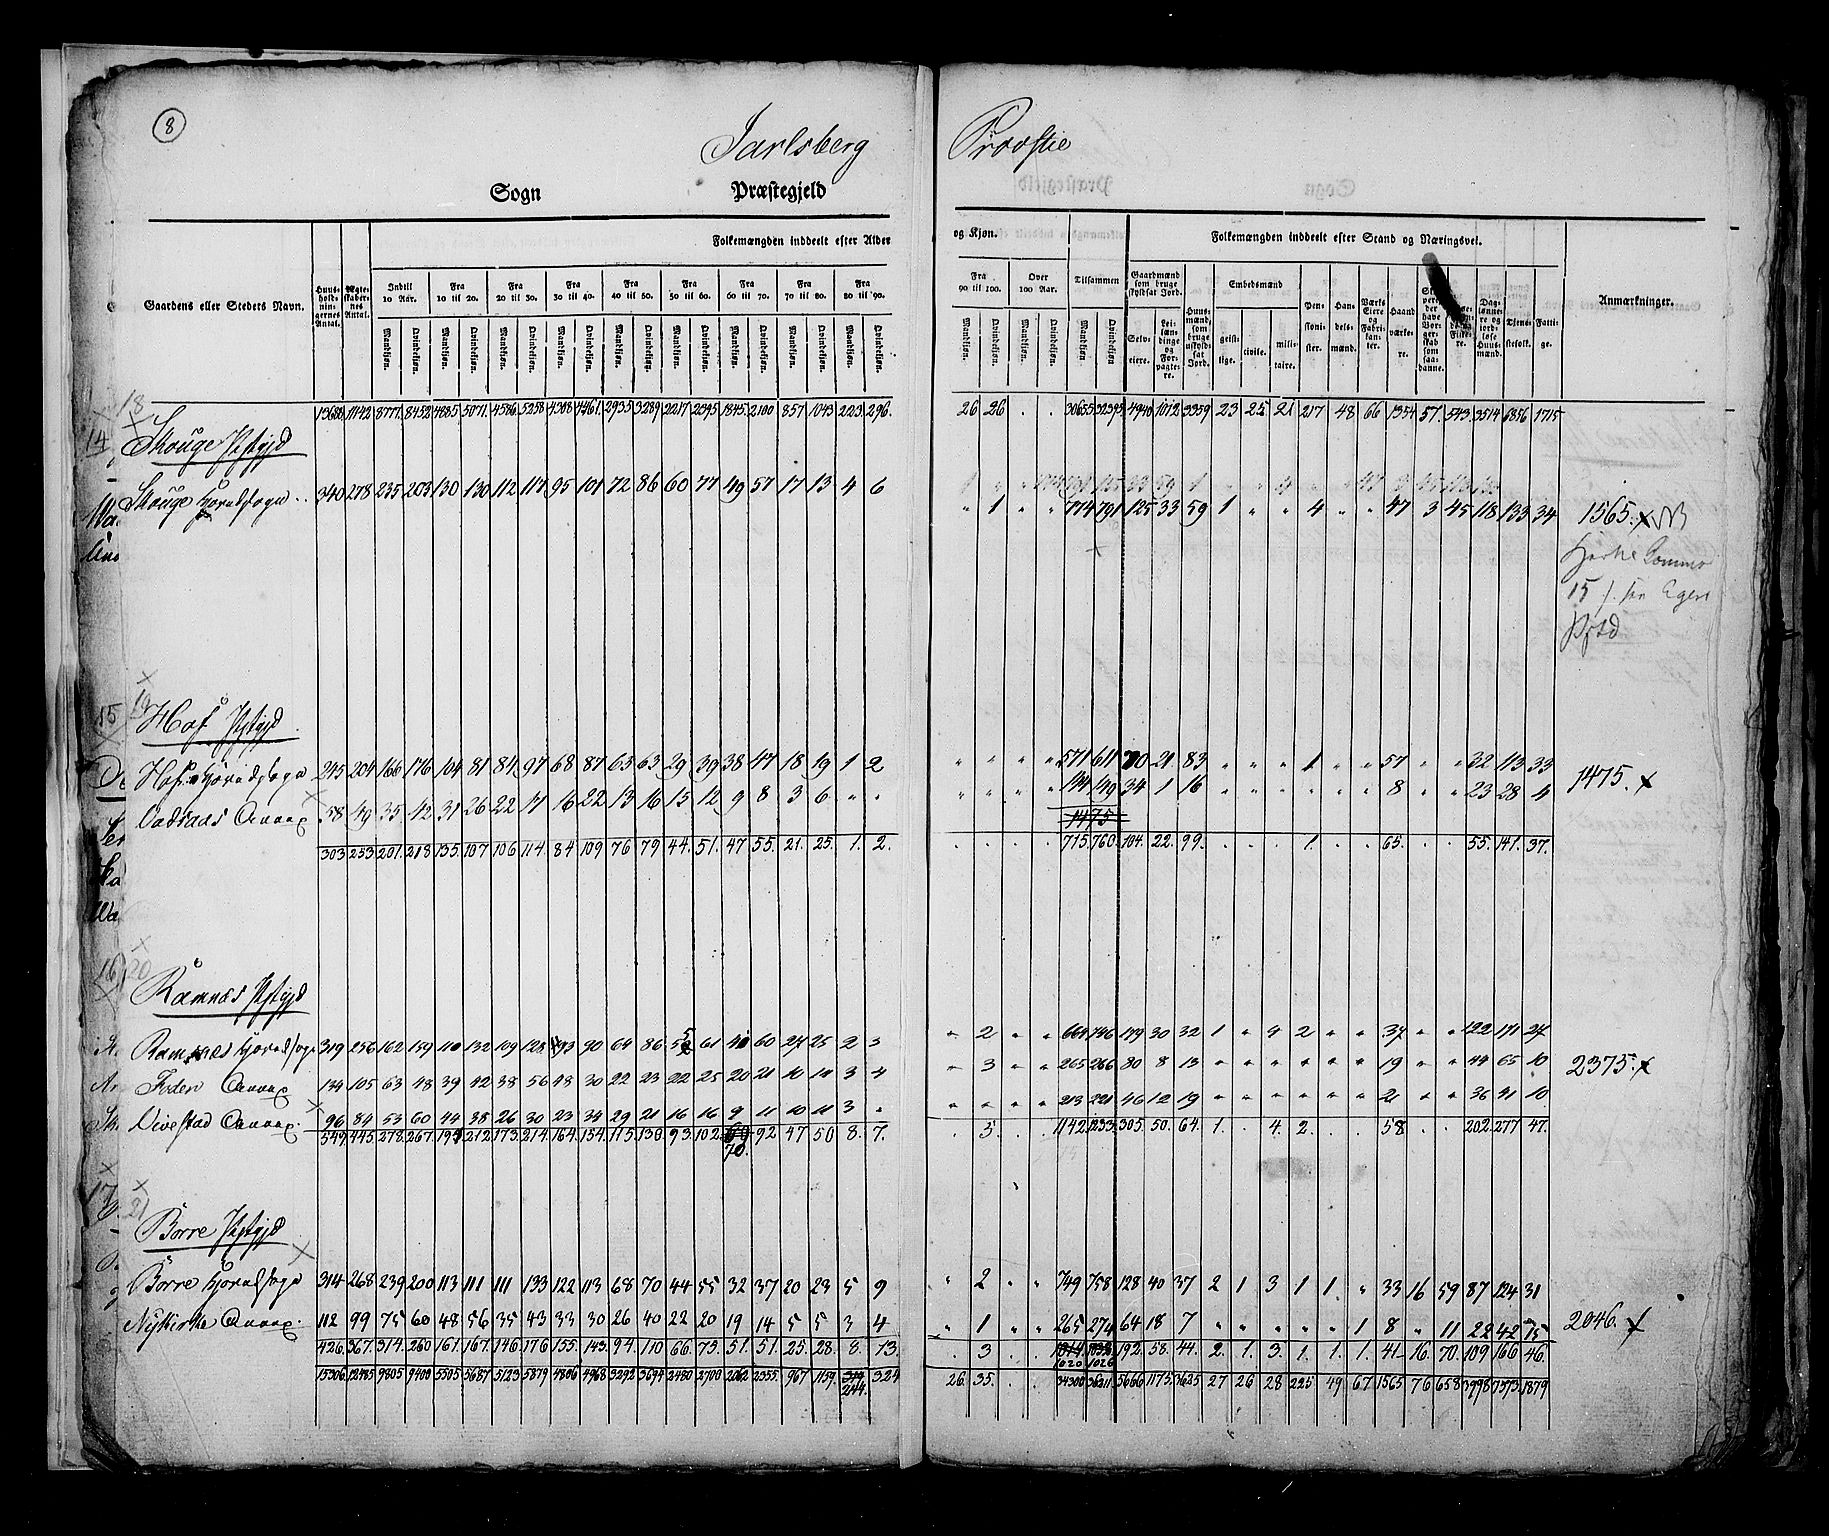 8
Jarlsberg Provstie
Sogn Præstegjeld
Folkemængden inddeelt efter Alder og Kjøn. Folkemængden inddeelt efter Stand og Næringsvei.
Gaardens eller Stedets Navn. Huus-hold-nin-gernes Antal. Ægte-skaber-nes Antal. Indtil 10 Aar. Fra 10 til 20. Fra 20 til 30. Fra 30 til 40. Fra 40 til 50. Fra 50 til 60. Fra 60 til 70. Fra 70 til 80. Fra 80 til 90. Fra 90 til 100. Over 100 Aar. Tilsammen Gaardmænd som bruge skyldsat Jord. Huusmænd, som bruge uskyldsat Jord. Embedsmænd Pensionister. Handelsmænd. Værks Eiere og Fabrikanter. Haandværkere. Tjenestefolk. Fattige. Anmærkninger.
Mandkjøn. Qvindekjøn. Selveiere. Leilændinge og Forpagtere. geistlige. civile. militaire.
18
13680 11142 8777 8452 4885 5071 4586 5258 4308 4461 2935 3289 2217 2395 1845 2100 857 1043 223 296 26 26 . . 30655 32395 4940 1012 3359 23 25 21 217 48 66 1354 57 543 3514 6856 1715
14 Skouge Pstgjd
Skouge Hovedsogn 340 278 235 203 130 130 112 117 95 101 72 86 60 77 49 57 17 13 4 6 " 1 " " 774 791 125 33 59 1 " " 4 " " 47 3 45 118 133 34 1565. x NB
15 19 Hof Pstgjd
Hofs Hovedsogn 245 204 166 176 104 81 84 97 68 87 63 63 29 39 38 47 18 19 1 2 " " " " 571 611 70 21 83 " " " 1 " " 57 " " 32 113 33 1475. x
58 49 35 42 31 26 22 17 16 22 13 16 15 12 9 8 3 6 " " " " " " 144 149 34 1 16 " " " " " " 8 " " 23 28 4
1475
303 253 201. 218 135. 107 106 114. 84 109 76 79 44. 51. 47 55. 21. 25. 1. 2. 715 760 104. 22. 99. 1. 65. 55. 141. 37.
16 20 Ramnæs Pstgjd
Ramnæs Hovedsogn 319 256 162 159 110 132 109 128 93 90 64 86 55 61 41 60 27 25 2 3 " 2 " " 664 746 179 30 32 1 " 4 2 " " 37 " " 122 171 27
Foden Annex 134 105 63 48 39 42 38 56 48 30 22 23 22 25 20 21 10 14 3 4 " 3 " " 265 266 80 8 13 " " " " " " 19 " " 44 65 10 2375. x
Vivestad Annex. 96 84 53 60 44 38 26 30 23 34 29 21 16 16 9 11 10 11 3 " " " " " 213 221 46 12 19 " " " " " " 21 " " 36 41 10
549. 445 278. 267. 193 212 173. 214. 164. 154. 115. 130. 93. 102. 70. 92 47 50 8. 7. . 5. 1142. 1233. 305. 50. 64. 1. . 4. 2. 58 202. 277 47.
17 21 Borre Pstgjd
Borre Hovedsogn 314 268 239 200 113 111 111 133 122 113 68 70 44 55 32 37 20 23 5 9 " 2 " " 749 758 128 40 37 2 1 3 1 1. " 33 16 59 87 124 31
Nykirke Annex. 112 99 75 60 48 56 35 43 33 30 26 40 22 20 19 14 5 5 3 4 " 1 " " 265 274 64 18 7 " " " " " 1 8 " 11 22 42 15 2046. x
426. 367. 314. 260 161. 167. 146. 176 155. 143. 94. 110 66. 73. 51. 51. 25. 28. 8. 13. . 3. 1014 1032 192. 58. 44. 2. 1. 3. 1. 1. 1. 41. 16. 70. 109 166 46.
1020 1026
15306. 12485 9805 9400 5505 5687 5123 5879 4806 4968 3292 3694 2480 2700 2062 2355. 967 1159. 244. 324 26. 35. 34300 36211 5666 1173. 3625 27 26 28 225 49 67. 1565 76 658 3998 7573 1879